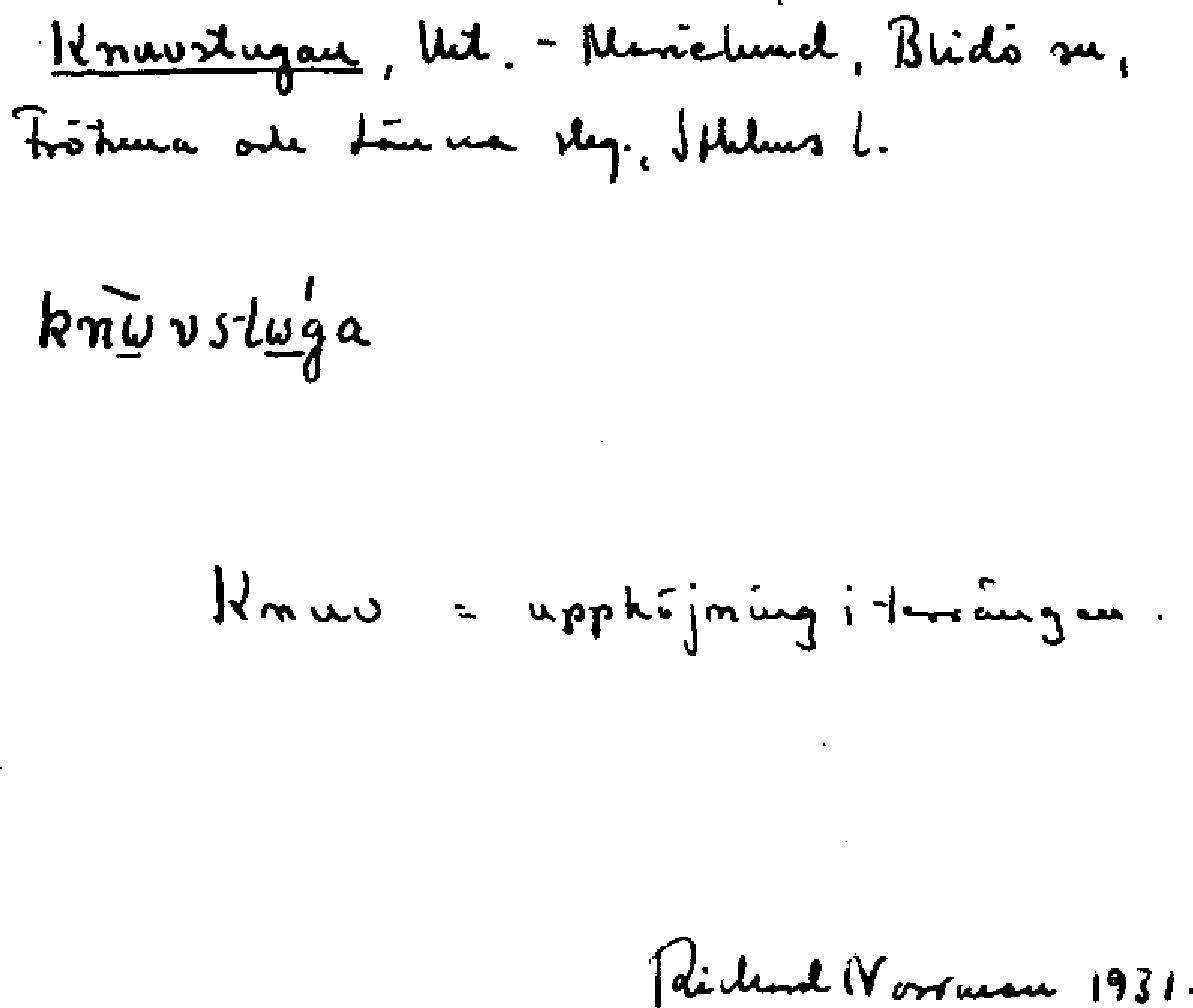 Knuvstugan, Utl. - Marielund, Blidö sn,
Frötuna och Länna skg., Sthlms l.
knὼ̲vstώ̲ga
Knuv = upphöjning i terrängen.
Richard Norrman 1931.